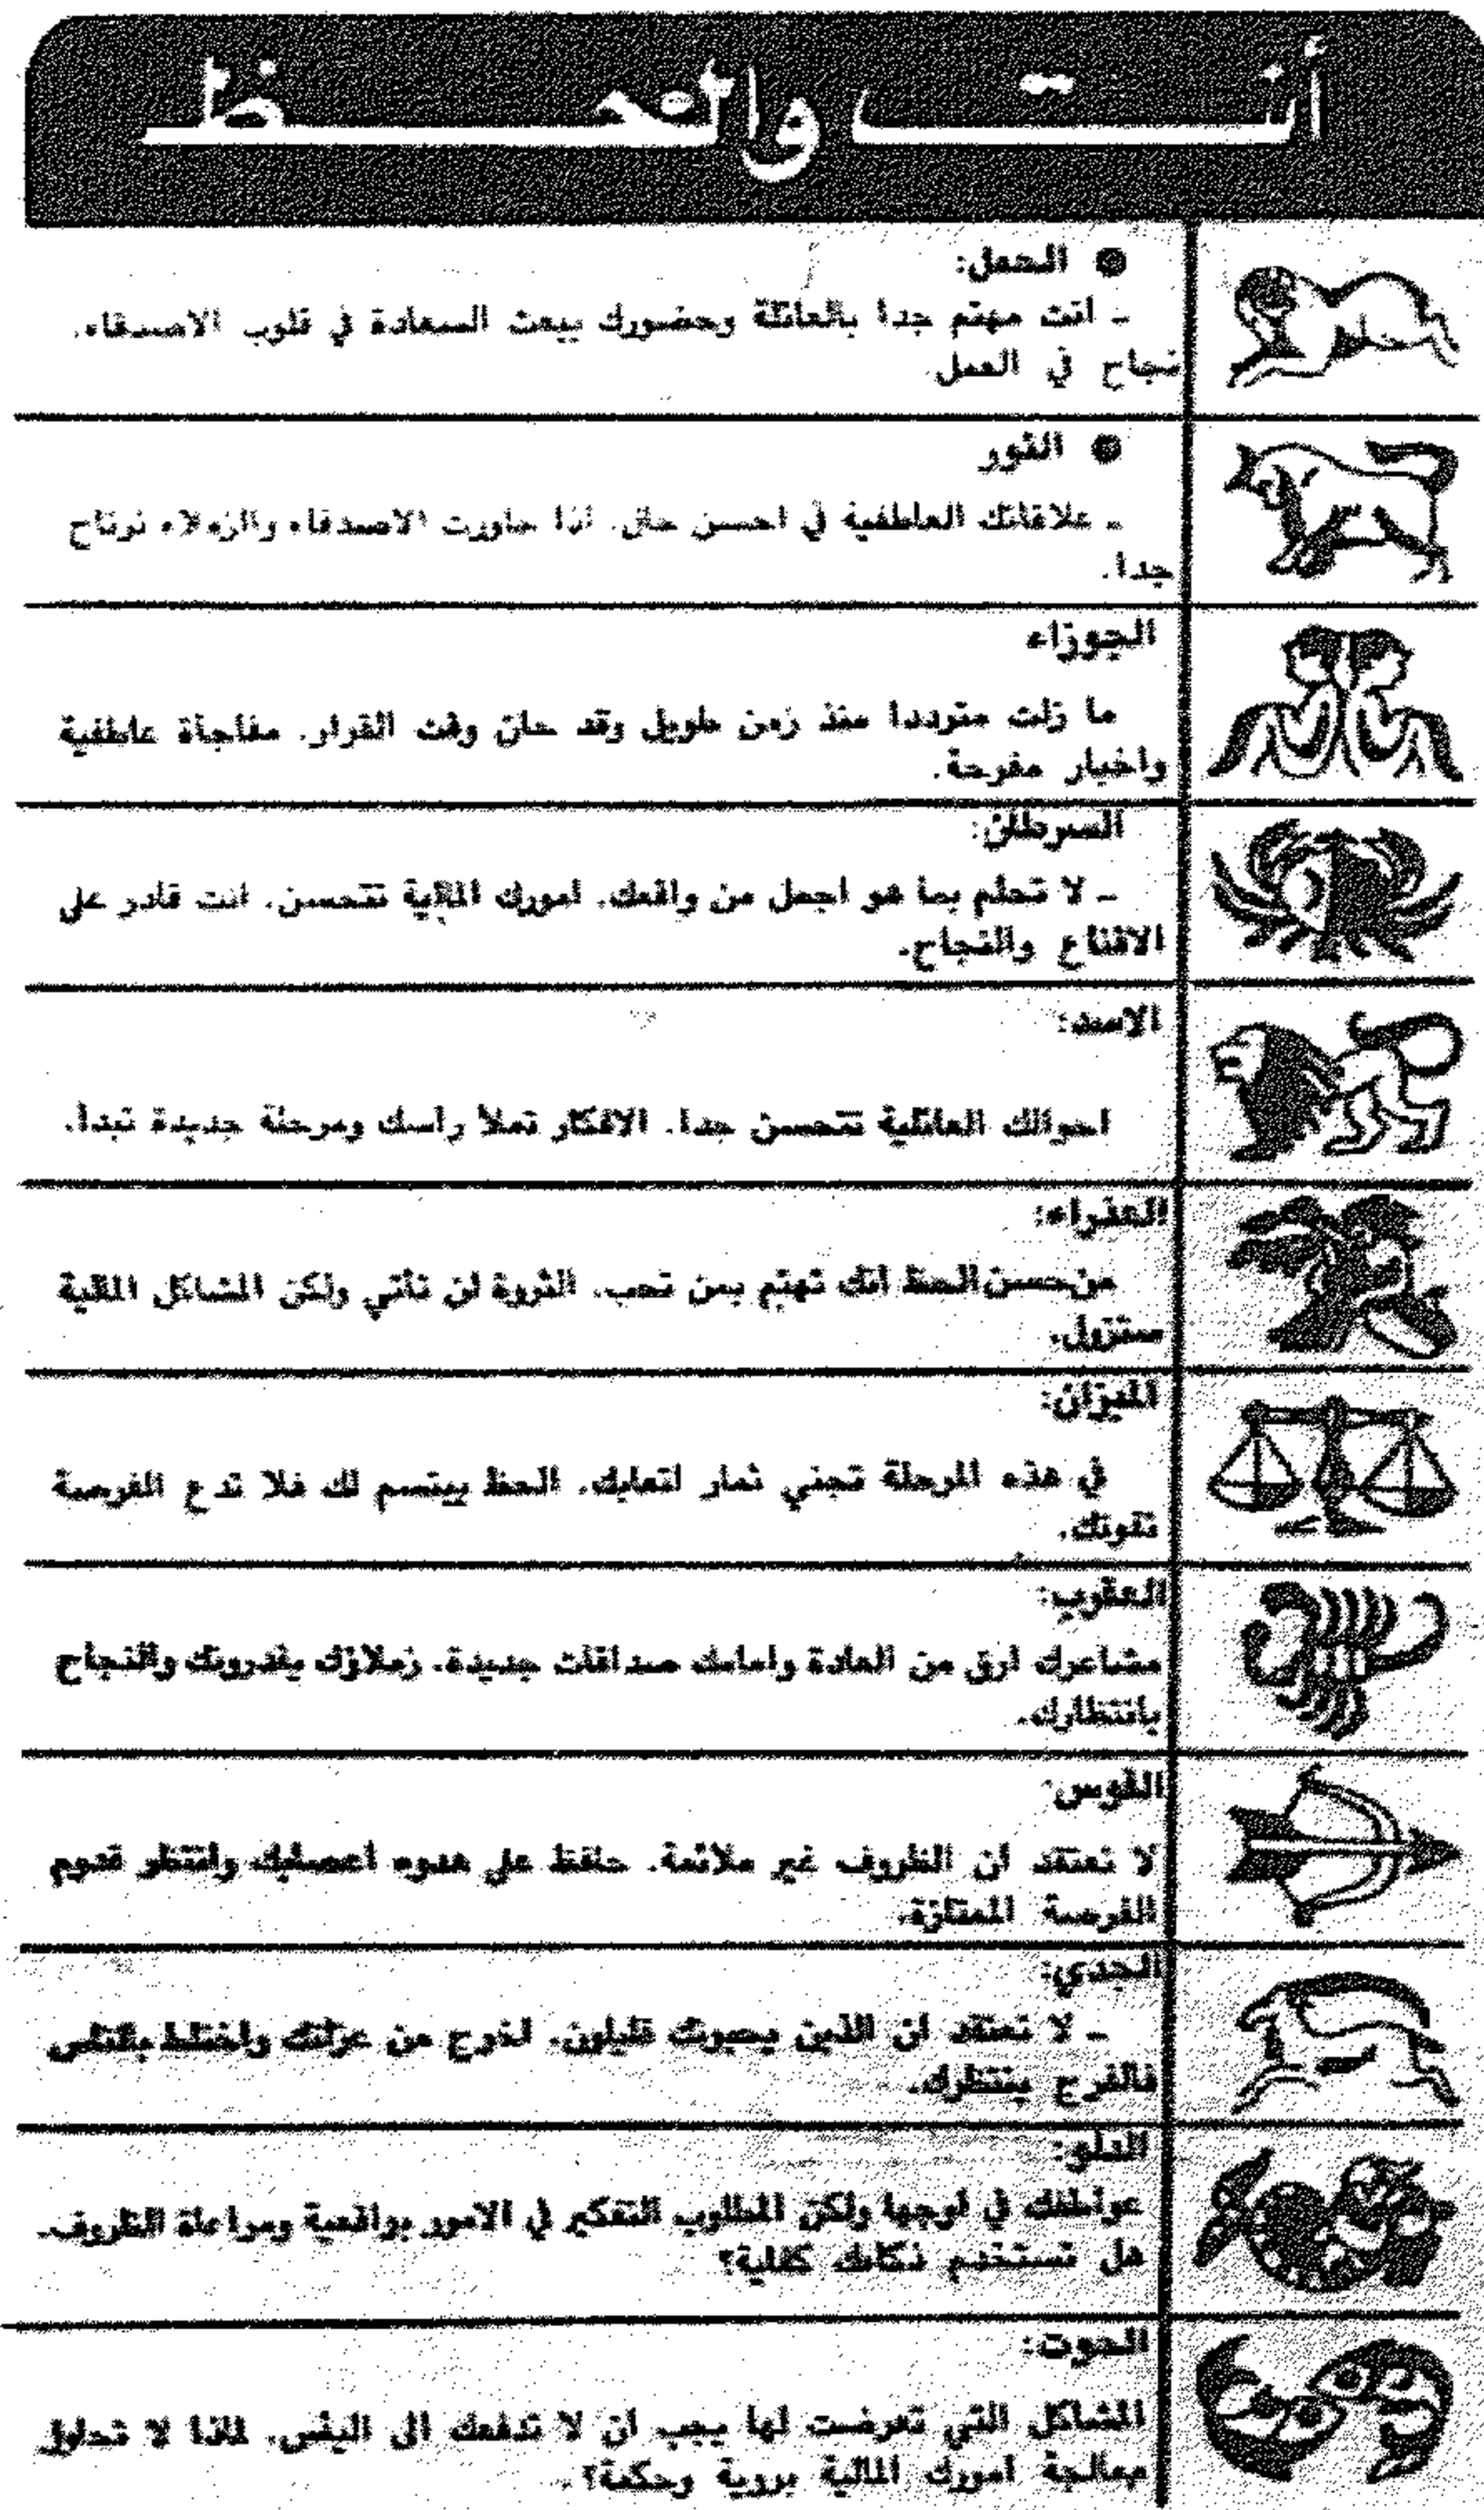 أنت والحظ
● الحمل:
ـ انت مهتم جدا بالعائلة وحضورك يبعث السعادة في قلوب الاصدقاء.
نجاح في العمل.
● الثور
ـ علاقاتك العاطفية في احسن حال. اذا حاورت الاصدقاء والزملاء ترتاح
جدا.
الجوزاء
ما زلت مترددا منذ زمن طويل وقد حان وقت القرار. مفاجأة عاطفية
واخبار مفرحة.
السرطان:
ـ لا تحلم بما هو اجمل من واقعك. امورك المالية تتحسن. انت قادر على
الاقناع والنجاح.
الاسد:
احوالك العائلية تتحسن جدا. الافكار تملأ راسك ومرحلة جديدة تبدأ.
العذراء:
من حسن الحظ انك تهتم بمن تحب. الثروة لن تأتي ولكن المشاكل المالية
ستزول.
الميزان:
في هذه المرحلة تجني ثمار اتعابك. الحظ يبتسم لك فلا تدع الفرصة
تفوتك.
العقرب:
مشاعرك ارق من العادة وامامك صداقات جديدة. زملاؤك يقدرونك والنجاح
بانتظارك.
القوس:
لا تعتقد ان الظروف غير ملائمة. حافظ على هدوء اعصابك وانتظر قدوم
الفرصة الممتازة.
الجدي:
ـ لا تعتقد ان الذين يحبونك قليلون. اخرج من عزلتك واختلط بالناس
فالفرج ينتظرك.
الدلو:
عواطفك في اوجها ولكن المطلوب التفكير في الامور بواقعية ومراعاة الظروف.
هل تستخدم ذكاءك كفاية؟
الحوت:
المشاكل التي تعرضت لها يجب ان لا تدفعك الى اليأس. لماذا لا تحاول
معالجة امورك المالية بروية وحكمة؟.